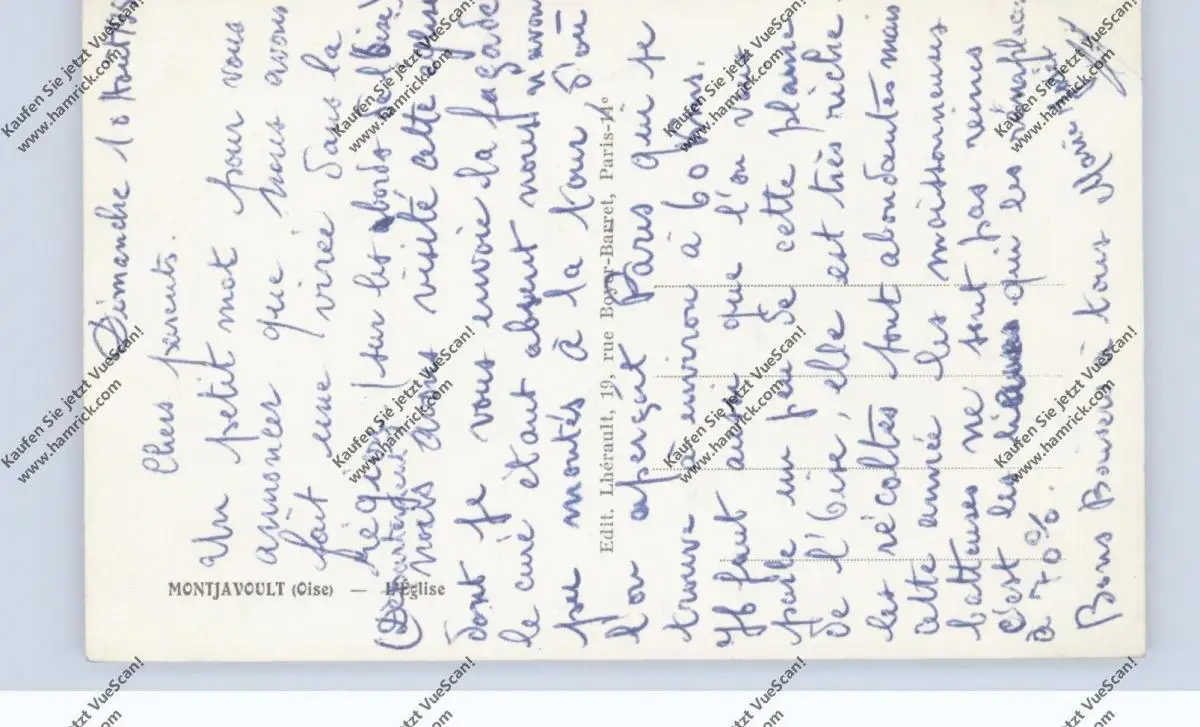 Dimanche 10 Août 195
Chers parents.
Un petit mot pour vous
annoncer que nous avons
fait une virée dans la
région (sur les bords de l'
nous avons visité cette église
dont je vous envoie la façade
le curé étant absent nous n'avons
pu montés à la tour d'où
l'on aperçoit Paris qui se
trouve à environ à 60 Km.
Il faut aussi que l'on vous
parle un peu de cette plaine
de l'Oise, elle est très riche.
les récoltes sont abondantes mais
cette année les moissonneuses
batteuses ne sont pas venus
c'est les qui les remplace
à 70%.
Bons Baisers à tous
MONTJAVOULT (Oise) — L'Église
Edit. Lhérault, 19, rue Boyer-Barret, Paris-14e
Kaufen Sie jetzt VueScan!
www.hamrick.com